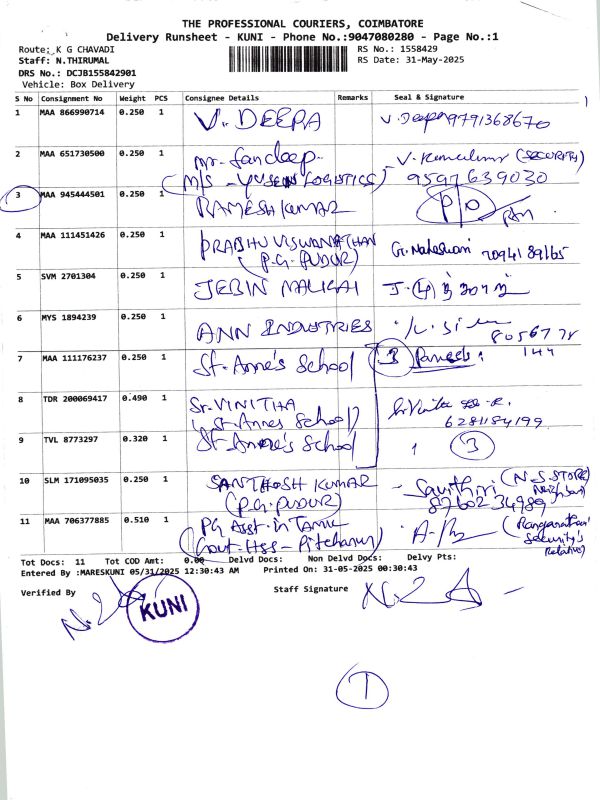 THE PROFESSIONAL COURIERS, COIMBATORE
Delivery Runsheet - KUNI - Phone No.:9047080280 - Page No.:1
Route: K G CHAVADI
RS No.: 1558429
Staff: N.THIRUMAL
RS Date: 31-May-2025
DRS No.: DCJB155842901
Vehicle: Box Delivery
S No Consignment No Weight PCS Consignee Details Remarks Seal & Signature
1 MAA 866990714 0.250 1 V. DEEPA V. Deepa 9791368670
2 MAA 651730500 0.250 1 Mr. Sandeep. (SECURITY)
(M/S - YUSEN LOGISTICS) 9597639030
3 MAA 945444501 0.250 1 RAMESH KUMAR P/O
4 MAA 111451426 0.250 1 PRABHU VISWANATHAN G. Maheswari 7094189165
(P.G. PUDUR)
5 SVM 2701304 0.250 1 JEBIN MALIGAI
6 MYS 1894239 0.250 1 ANN INDUSTRIES
7 MAA 111176237 0.250 1 St. Anne's School 3
8 TDR 200069417 0.490 1 Sr. VINITHA
(St. Annes School) 6281184199
9 TVL 8773297 0.320 1 St. Anne's School 3
10 SLM 171095035 0.250 1 SANTHOSH KUMAR (N.S. STORE
(P.G. PUDUR) 8760234989 Neighbour)
11 MAA 706377885 0.510 1 PG Asst. in TAMIL
(Govt. HSS - Pitchanur) Security's
Relative)
Tot Docs: 11 Tot COD Amt: 0.00 Delvd Docs: Non Delvd Docs: Delvy Pts:
Entered By :MARESKUNI 05/31/2025 12:30:43 AM Printed On: 31-05-2025 00:30:43
Verified By Staff Signature
KUNI
1